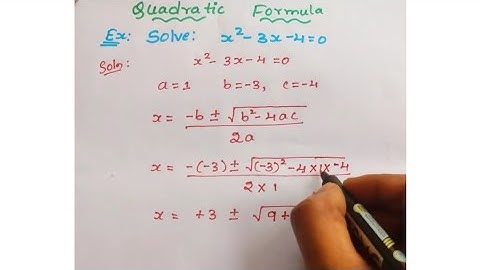 Quadratic Formula
Ex: Solve: x² - 3x - 4 = 0
Soln: x² - 3x - 4 = 0
a = 1 b = -3, c = -4
x = (-b ± √(b² - 4ac)) / 2a
x = (-(-3) ± √((-3)² - 4 × 1 × -4)) / 2 × 1
x = +3 ± √9 +